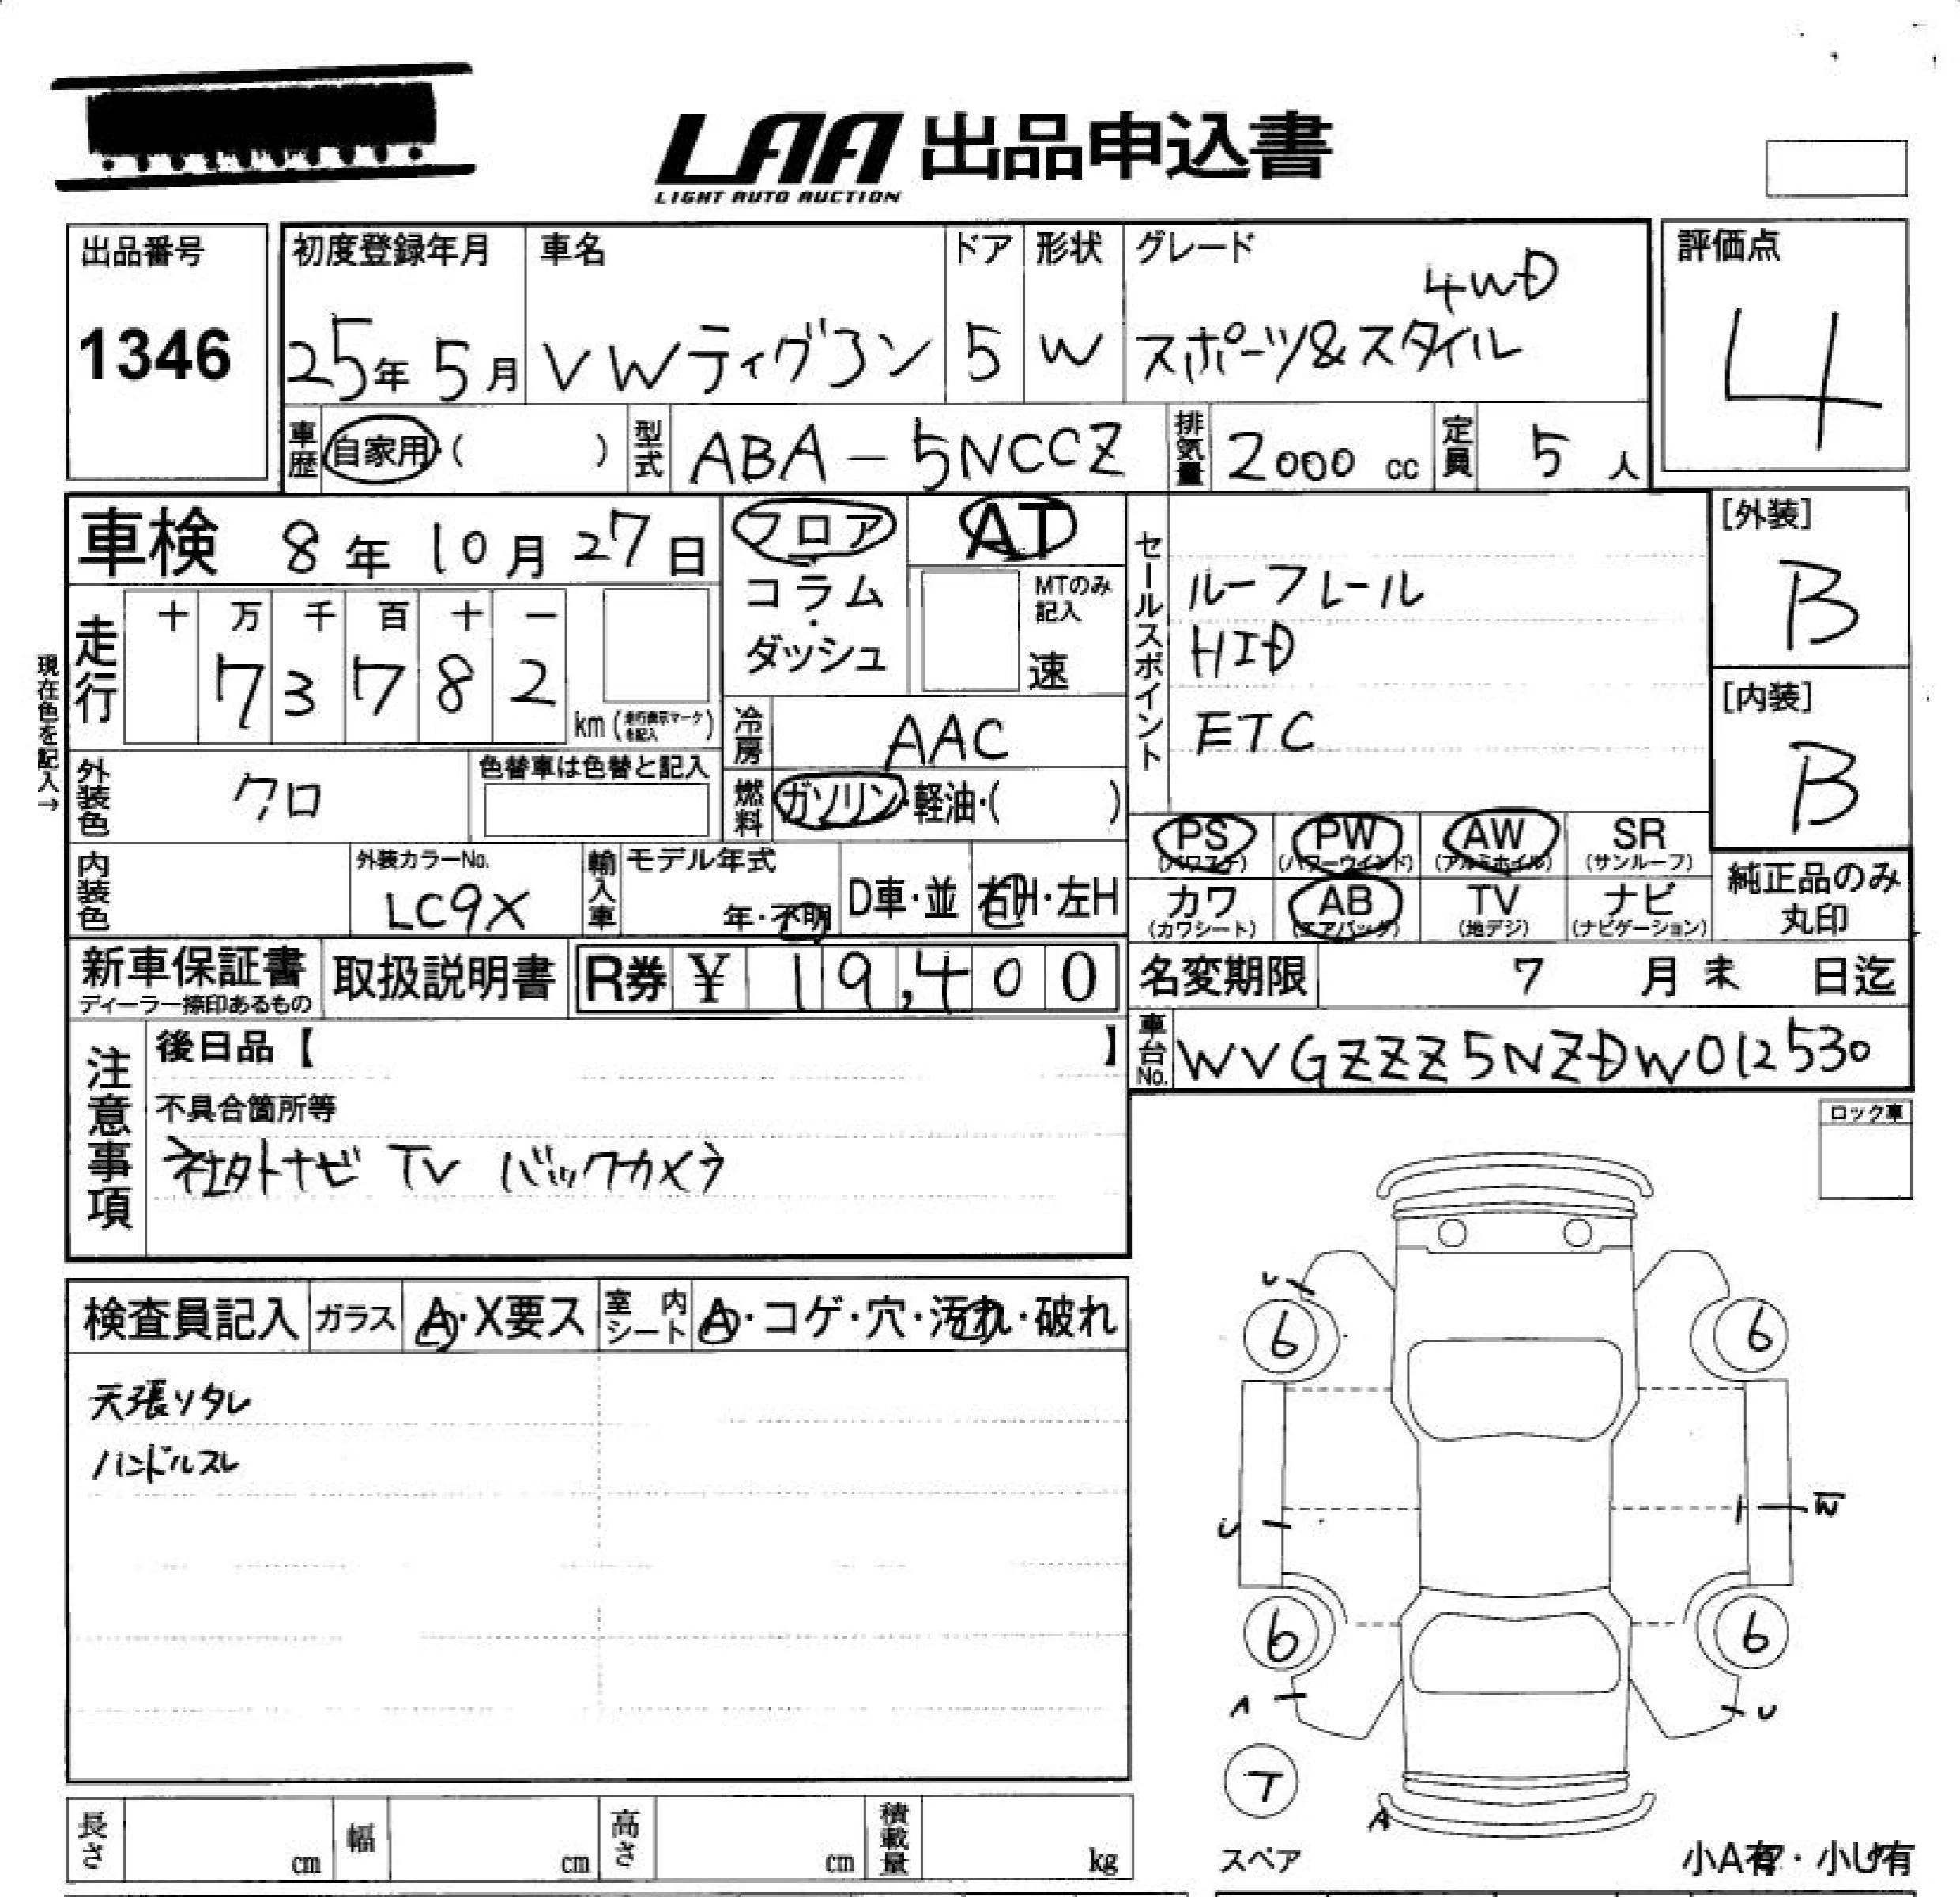 LAA 出品申込書
LIGHT AUTO AUCTION
出品番号
1346
初度登録年月
25年 5月
車名
VWティグアン
ドア
5
形状
W
グレード
4WD
スポーツ&スタイル
評価点
4
車歴
自家用・( )
型式
ABA-5NCCZ
排気量
2000 cc
定員
5 人
車検 8年 10月 27日
フロア
コラム
・
ダッシュ
AT
MTのみ
記入
速
セールスポイント
ルーフレール
HID
ETC
[外装]
B
[内装]
B
現在色を記入→
走行
十 万 千 百 十 一
7 3 7 8 2
km (走行表示マークを記入)
冷房
AAC
外装色
クロ
色替車は色替と記入
燃料
ガソリン・軽油・( )
PS
(パワステ)
PW
(パワーウインド)
AW
(アルミホイル)
SR
(サンルーフ)
内装色
外装カラーNo.
LC9X
輸入車
モデル年式
年・不明
D車・並
右H・左H
カワ
(カワシート)
AB
(エアバック)
TV
(地デジ)
ナビ
(ナビゲーション)
純正品のみ
丸印
新車保証書
ディーラー捺印あるもの
取扱説明書
R券 ¥ 19,400
名変期限 7 月 末 日迄
車台No.
WVGZZZ5NZDW012530
注意事項
後日品【 】
不具合箇所等
社外ナビ TV バックカメラ
ロック車
検査員記入
ガラス
A・X要ス
室内シート
A・コゲ・穴・汚れ・破れ
天張リタレ
ハンドルスレ
U
6 6
U
W
6 6
A
U
T
A
スペア
小A有・小U有
長さ cm
幅 cm
高さ cm
積載量 kg